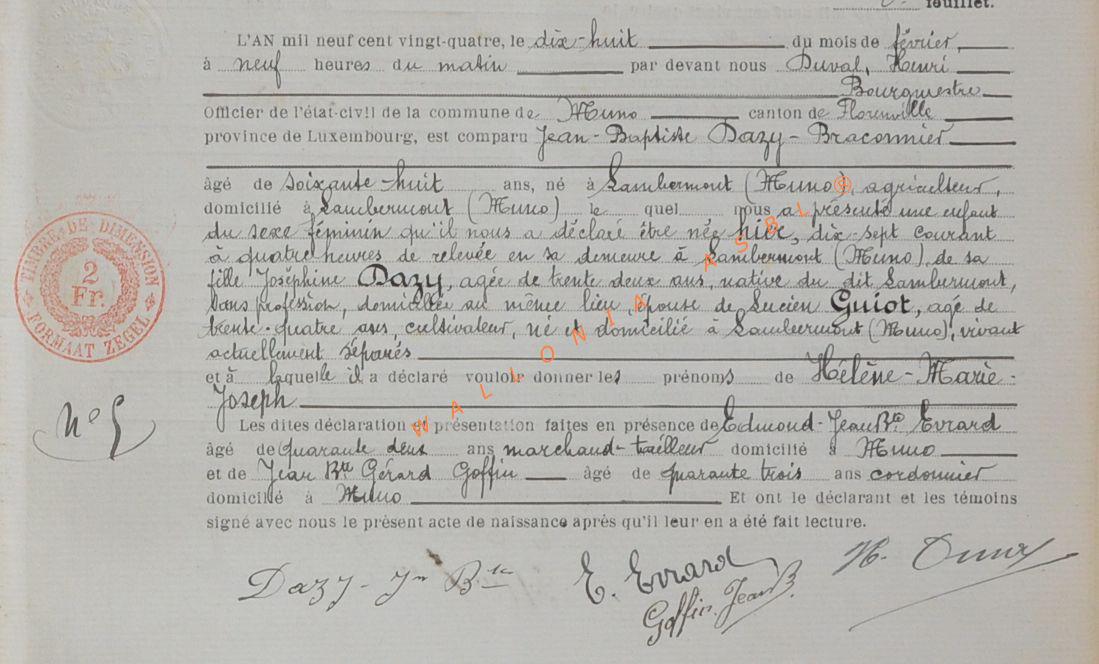 feuillet.
L'AN mil neuf cent vingt-quatre, le dix-huit du mois de février,
à neuf heures du matin par devant nous Duval, Henri
Bourgmestre
Officier de l'état-civil de la commune de Muno canton de Florenville
province de Luxembourg, est comparu Jean-Baptiste Dazy-Braconnier
âgé de soixante-huit ans, né à Lambermont (Muno), agriculteur,
domicilié à Lambermont (Muno) le quel nous a présenté une enfant
du sexe féminin qu'il nous a déclaré être née hier, dix-sept courant
à quatre heures de relevée en sa demeure à Lambermont (Muno), de sa
fille Joséphine Dazy, agée de trente deux ans, native du dit Lambermont,
sans profession, domiciliée au même lieu, épouse de Lucien Guiot, agé de
trente-quatre ans, cultivateur, né et domicilié à Lambermont (Muno), vivant
actuellement séparés
et à laquelle il a déclaré vouloir donner les prénoms de Hélène-Marie-
Joseph
Les dites déclaration et présentation faites en présence de Edmond-Jean Bte Evrard
âgé de quarante deux ans marchand-tailleur domicilié à Muno
et de Jean Bte Gérard Goffin âgé de quarante trois ans cordonnier
domicilié à Muno Et ont le déclarant et les témoins
signé avec nous le présent acte de naissance après qu'il leur en a été fait lecture.
Dazy-Jn Bte E. Evrard H. Duval
Goffin Jean B.
TIMBRE DE DIMENSION
2
Fr.
FORMAAT ZEGEL
N° 5
WALLONIA ASBL